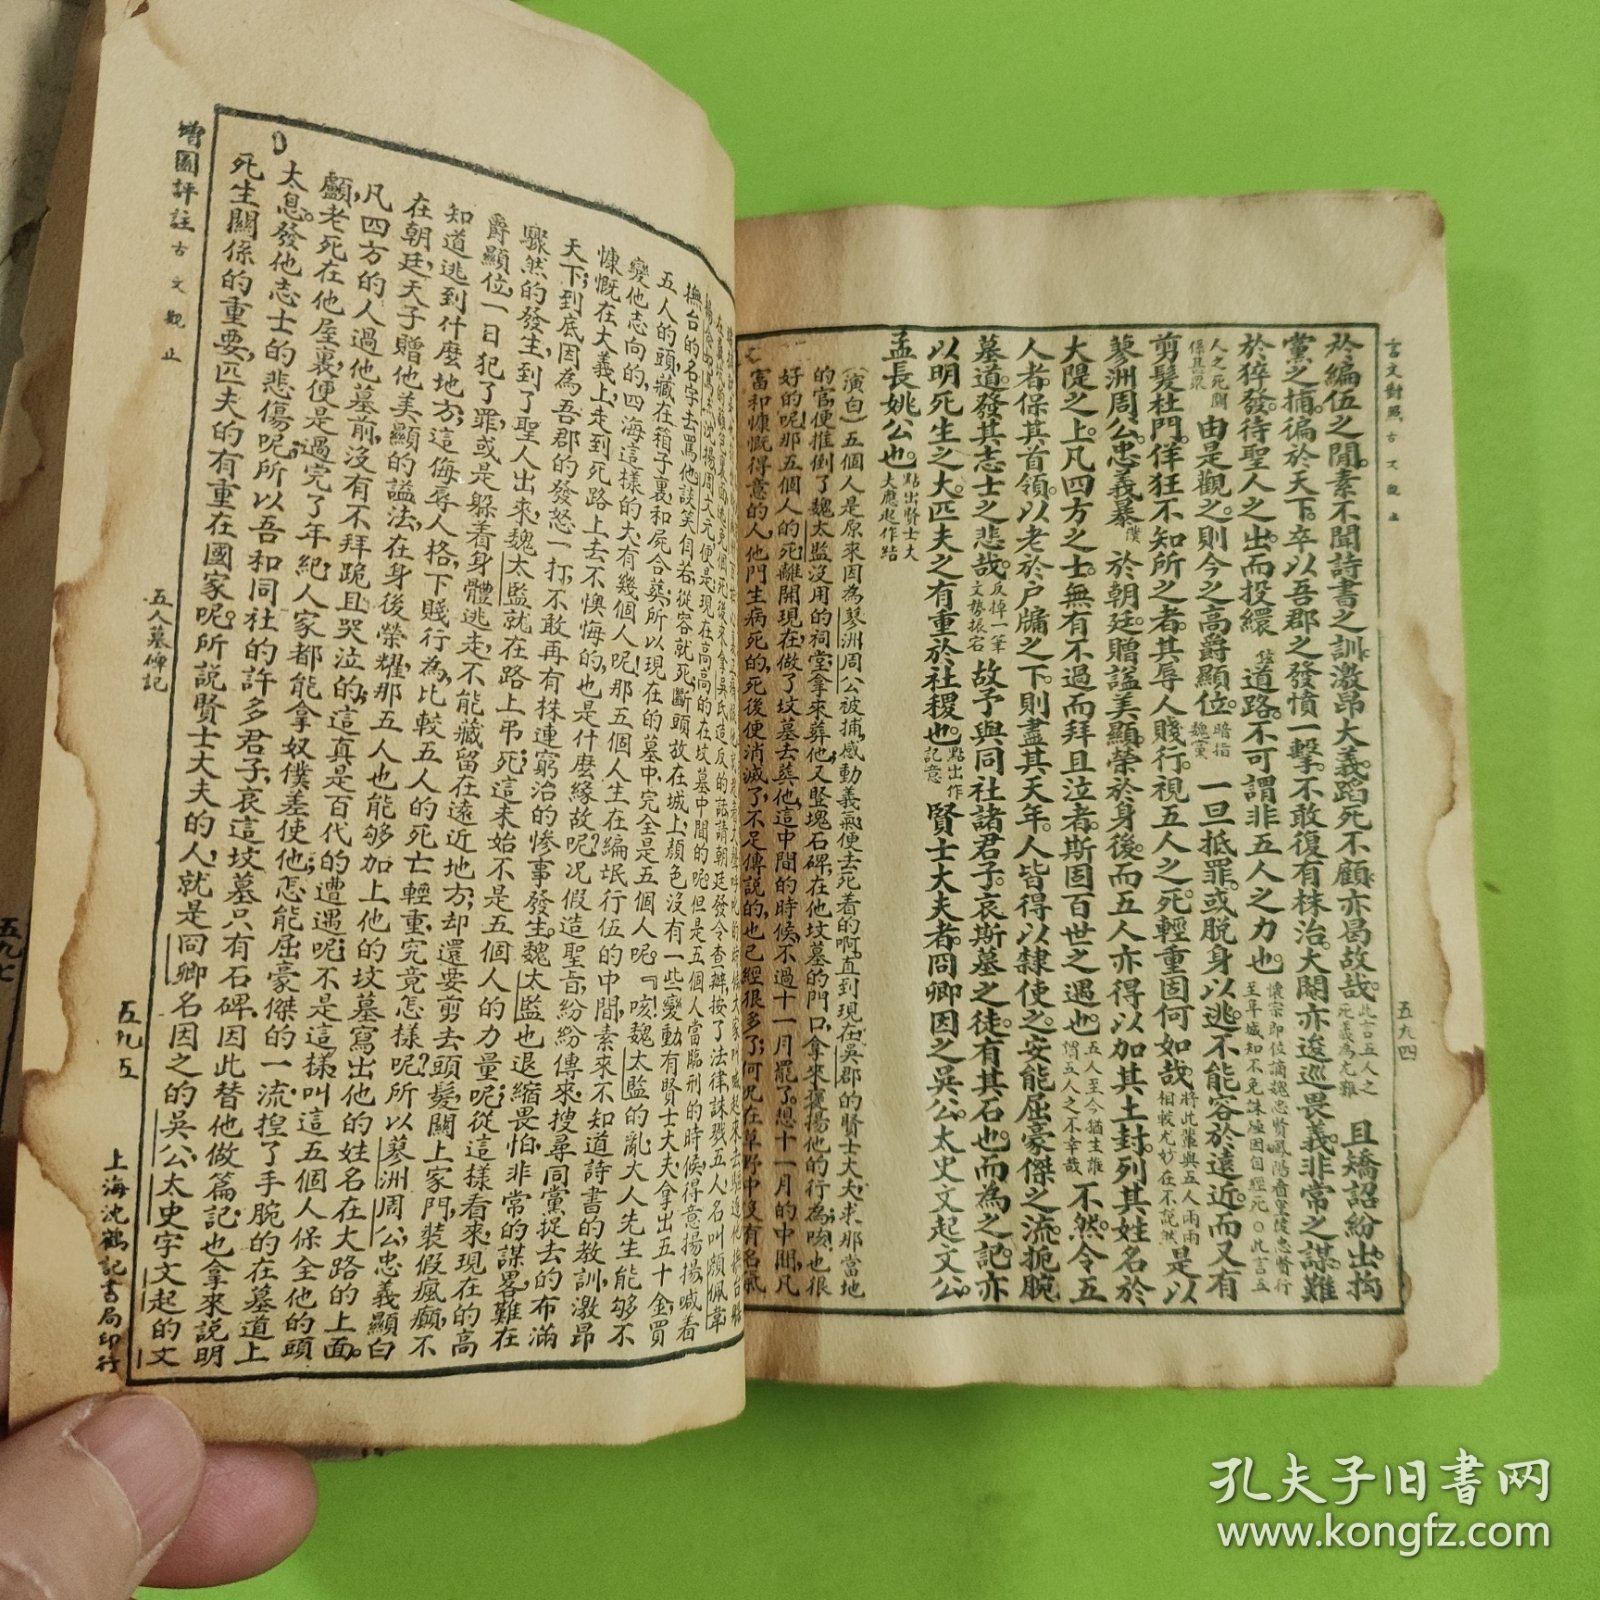 言文對照古文觀止
五九四
於編伍之間素不聞詩書之訓激昂大義蹈死不顧亦曷故哉此言五人之死義為尤難且矯詔紛出拘
黨之捕徧於天下卒以吾郡之發憤一擊不敢復有株治大閹亦逡巡畏義非常之謀難
於猝發待聖人之出而投繯道路不可謂非五人之力也
人之死關係甚眾由是觀之則今之高爵顯位暗指魏黨一旦抵罪或脫身以逃不能容於遠近而又有
剪髮杜門佯狂不知所之者其辱人賤行視五人之死輕重固何如哉將此輩與五人兩兩相較尤妙在不說然是以
蓼洲周公忠義暴於朝廷贈謚美顯榮於身後而五人亦得以加其土封列其姓名於
大隄之上凡四方之士無有不過而拜且泣者斯固百世之遇也不然令五
人者保其首領以老於戶牖之下則盡其天年人皆得以隸使之安能屈豪傑之流扼腕
墓道發其志士之悲哉反掉一筆文勢振宕故予與同社諸君子哀斯墓之徒有其石也而為之記亦
以明死生之大匹夫之有重於社稷也點出作記意賢士大夫者冏卿因之吳公太史文起文公
孟長姚公也點出賢士大夫應起作結
（演白）五個人是原來因為蓼洲周公被捕感動義氣便去死着的啊直到現在吳郡的賢士大夫求那當地
的官便推倒了魏太監沒用的祠堂拿來葬他又豎塊石碑在他坟墓的門口拿來褒揚他的行為咳也很
好的呢那五個人的死離開現在做了坟墓去葬他這中間的時候不過十一月罷了想十一月的中間凡
富和慷慨得意的人他門生病死的死後便消滅了不足傳說的也已經很多了何况在草野中沒有名氣
撫台的名字去罵他談笑自若從容就死斷頭放在城上顏色沒有一些變動有賢士大夫拿出五十金買
五人的頭藏在箱子裏和屍合葬所以現在的墓中完全是五個人呢咳魏太監的亂大人先生能够不
變他志向的四海這樣的大有幾個人呢那五個人生在編氓行伍的中間素來不知道詩書的教訓激昂
慷慨在大義上走到死路上去不懊悔的也是什麽緣故呢况假造聖旨紛紛傳來搜尋同黨捉去的布滿
天下到底因為吾郡的發怒一打不敢再有株連窮治的惨事發生魏太監也退縮畏怕非常的謀畧難在
驟然的發生到了聖人出來魏太監就在路上吊死這未始不是五個人的力量呢從這樣看來現在的高
爵顯位一日犯了罪或是躲着身體逃走不能藏留在遠近地方却還要剪去頭髮關上家門裝假瘋癲不
知道逃到什麽地方這侮辱人格下賤行為比較五人的死亡輕重究竟怎樣呢所以蓼洲周公忠義顯白
在朝廷天子贈他美顯的謚法在身後榮耀那五人也能够加上他的坟墓寫出他的姓名在大路的上面
凡四方的人過他墓前沒有不拜跪且哭泣的這真是百代的遭遇呢不是這樣叫這五個人保全他的頭
顱老死在他屋裏便是過完了年紀人家都能拿奴僕差使他怎能屈豪傑的一流揑了手腕的在墓道上
太息發他志士的悲傷呢所以吾和同社的許多君子哀這坟墓只有石碑因此替他做篇記也拿來說明
死生關係的重要匹夫的有重在國家呢所説賢士大夫的人就是冏卿名因之的吳公太史字文起的文
增圖評註古文觀止
五人墓碑記
五九五
上海沈鶴記書局印行
五九七
孔夫子旧書网
www.kongfz.com